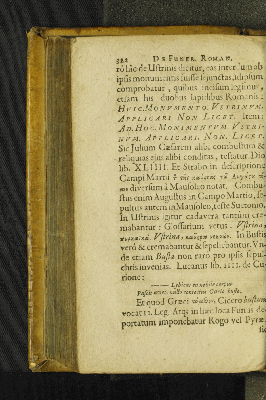 322 DE FUNER. ROMAN.
ró hác de Ustrinis dicitur, eas intellum ab
ipsis monumentis fuisse sejunctas, id ipsum
comprobatur, quibus incisum legitur,
etiam his duobus lapidibus Romanis:
HUIC. MONUMENTO. VSTRINUM.
APPLICARI NON LICET. Item:
AD. HOC. MONIMENTUM VSTRI-
NUM. APPLICARI. NON. LICET.
Sic Julium Cæsarem alibi combustum &
reliquias ejus alibi conditas, testatur Dio
lib. XLIIII. Et Strabo in descriptione
Campi Martii
diversum à Mausoleo notat. Combu-
stus enim Augustus in Campo Martio, se-
pultus autem in Mausoleo, teste Suetonio.
In Ustrinis igitur cadavera tantùm cre-
mabantur: Glossarium vetus. Vstrina,
Vstrina, In Bustis
verò & cremabantur & sepeliebantur. Vn-
de etiam Busta non raro pro ipsis sepul-
chris invenias. Lucanus lib. de Cu-
rione:
Libycas en nobile corpus
Pascit aves nullo contectus Curio busto.
Et quod Græci Cicero bustum
vocat 2. Leg. Atqs in hæc loca Funus de-
portatum imponebatur Rogo vel Pyræ,